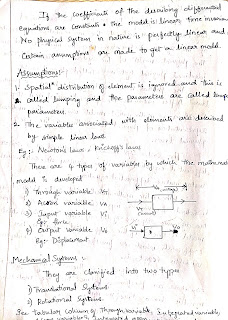 If the coefficients of the describing differential
equations are constants the model is linear time invarian
No physical system in nature is perfectly linear and
Certain assumptions are made to get a linear model.
Assumptions:-
1. Spatial distribution of element is ignored and this is
called lumping and the parameters are called lump
parameters.
2. The variables associated with elements are described
by simple linear laws
Eg:- Newton's laws, Kirchoff's laws
There are 4 types of variables by which the mathema
model is developed
1) Through variable VT.
2) Across variable VA
3) Input variable Vi
Eg: force
4) Output variable Vo
Eg: Displacement
Mechanical Systems :
They are classified into two types
1) Translational Systems
2) Rotational Systems
See Tabular Column of Through variable, Integrated variable,